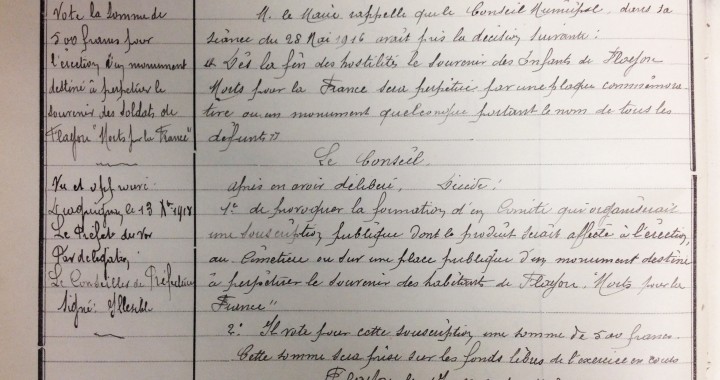 Vote la somme de
500 francs pour
l'érection d'un monument
destiné à perpétuer le
souvenir des soldats de
Flayosc "Morts pr la France"
Vu et approuvé:
Draguignan, le 13 Xbre 1918
Le Préfet du Var
Par délégation
Le Conseiller de Préfecture
Signé:
M. le Maire rappelle que le Conseil Municipal, dans sa
séance du 28 Mai 1916 avait pris la décision suivante:
« Dès la fin des hostilités le souvenir des Enfants de Flayosc
Morts pour la France sera perpétué par une plaque commémora-
tive ou un monument quelconque portant le nom de tous les
défunts »
Le Conseil,
après en avoir délibéré, Décide:
1º de provoquer la formation d'un Comité qui organiserait
une souscription publique dont le produit serait affecté à l'érection,
au Cimetière ou sur une place publique d'un monument destiné
à perpétuer le souvenir des habitants de Flayosc "Morts pour la
France"
2º Il vote pour cette souscription une somme de 500 francs.
Cette somme sera prise sur les fonds libres de l'exercice en cours